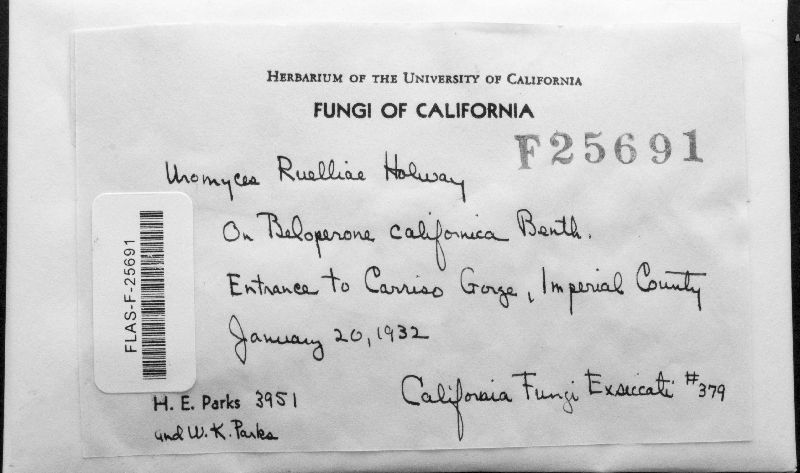 HERBARIUM OF THE UNIVERSITY OF CALIFORNIA
FUNGI OF CALIFORNIA
F25691
Uromyces Ruelliae Holway
On Beloperone californica Benth.
Entrance to Carriso Gorge, Imperial County
January 20, 1932
FLAS-F-25691
H. E. Parks 3951
and W. K. Parks
California Fungi Exsiccati #379